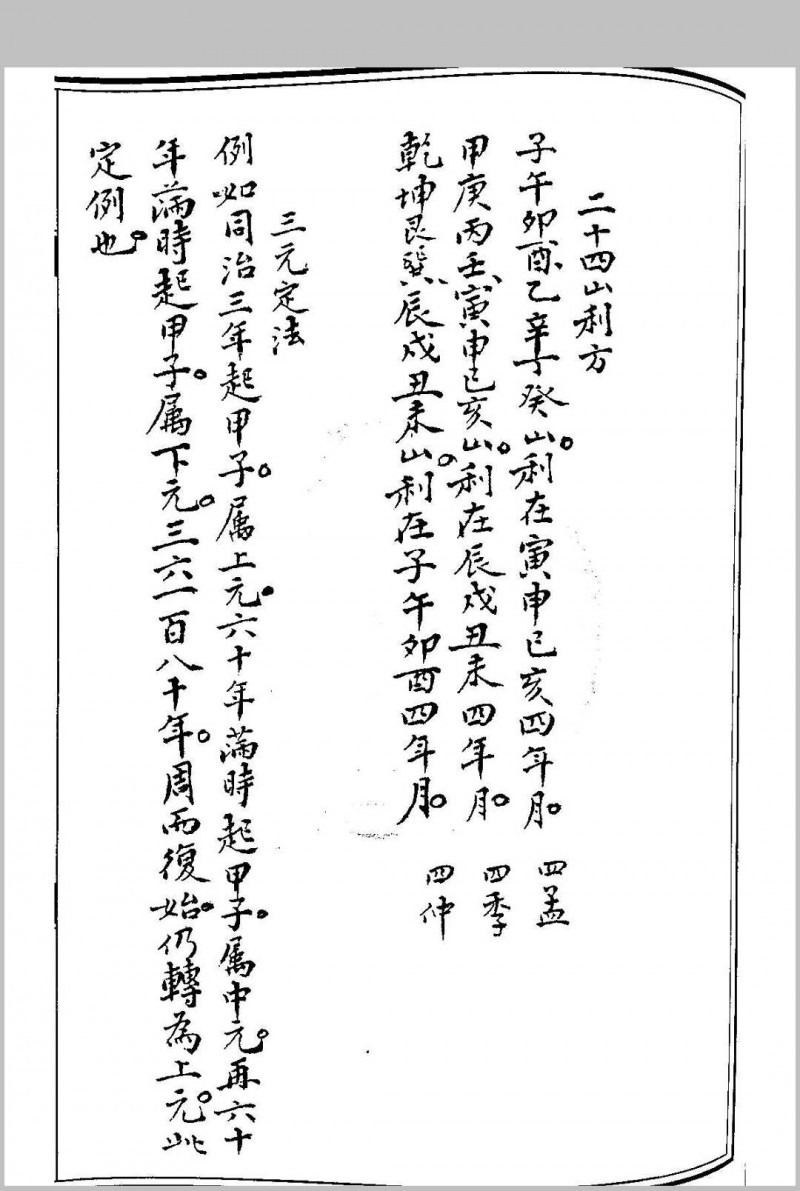 二十四山利方
子午卯酉乙辛丁癸山。利在寅申巳亥四年月。 四孟
甲庚丙壬寅申巳亥山。利在辰戍丑未四年月。 四季
乾坤艮巽辰戍丑未山。利在子午卯酉四年月。 四仲
三元定法
例如同治三年起甲子。属上元。六十年滿時起甲子。属中元。再六十
年滿時起甲子。属下元。三六一百八十年。周而復始。仍轉為上元。此
定例也。